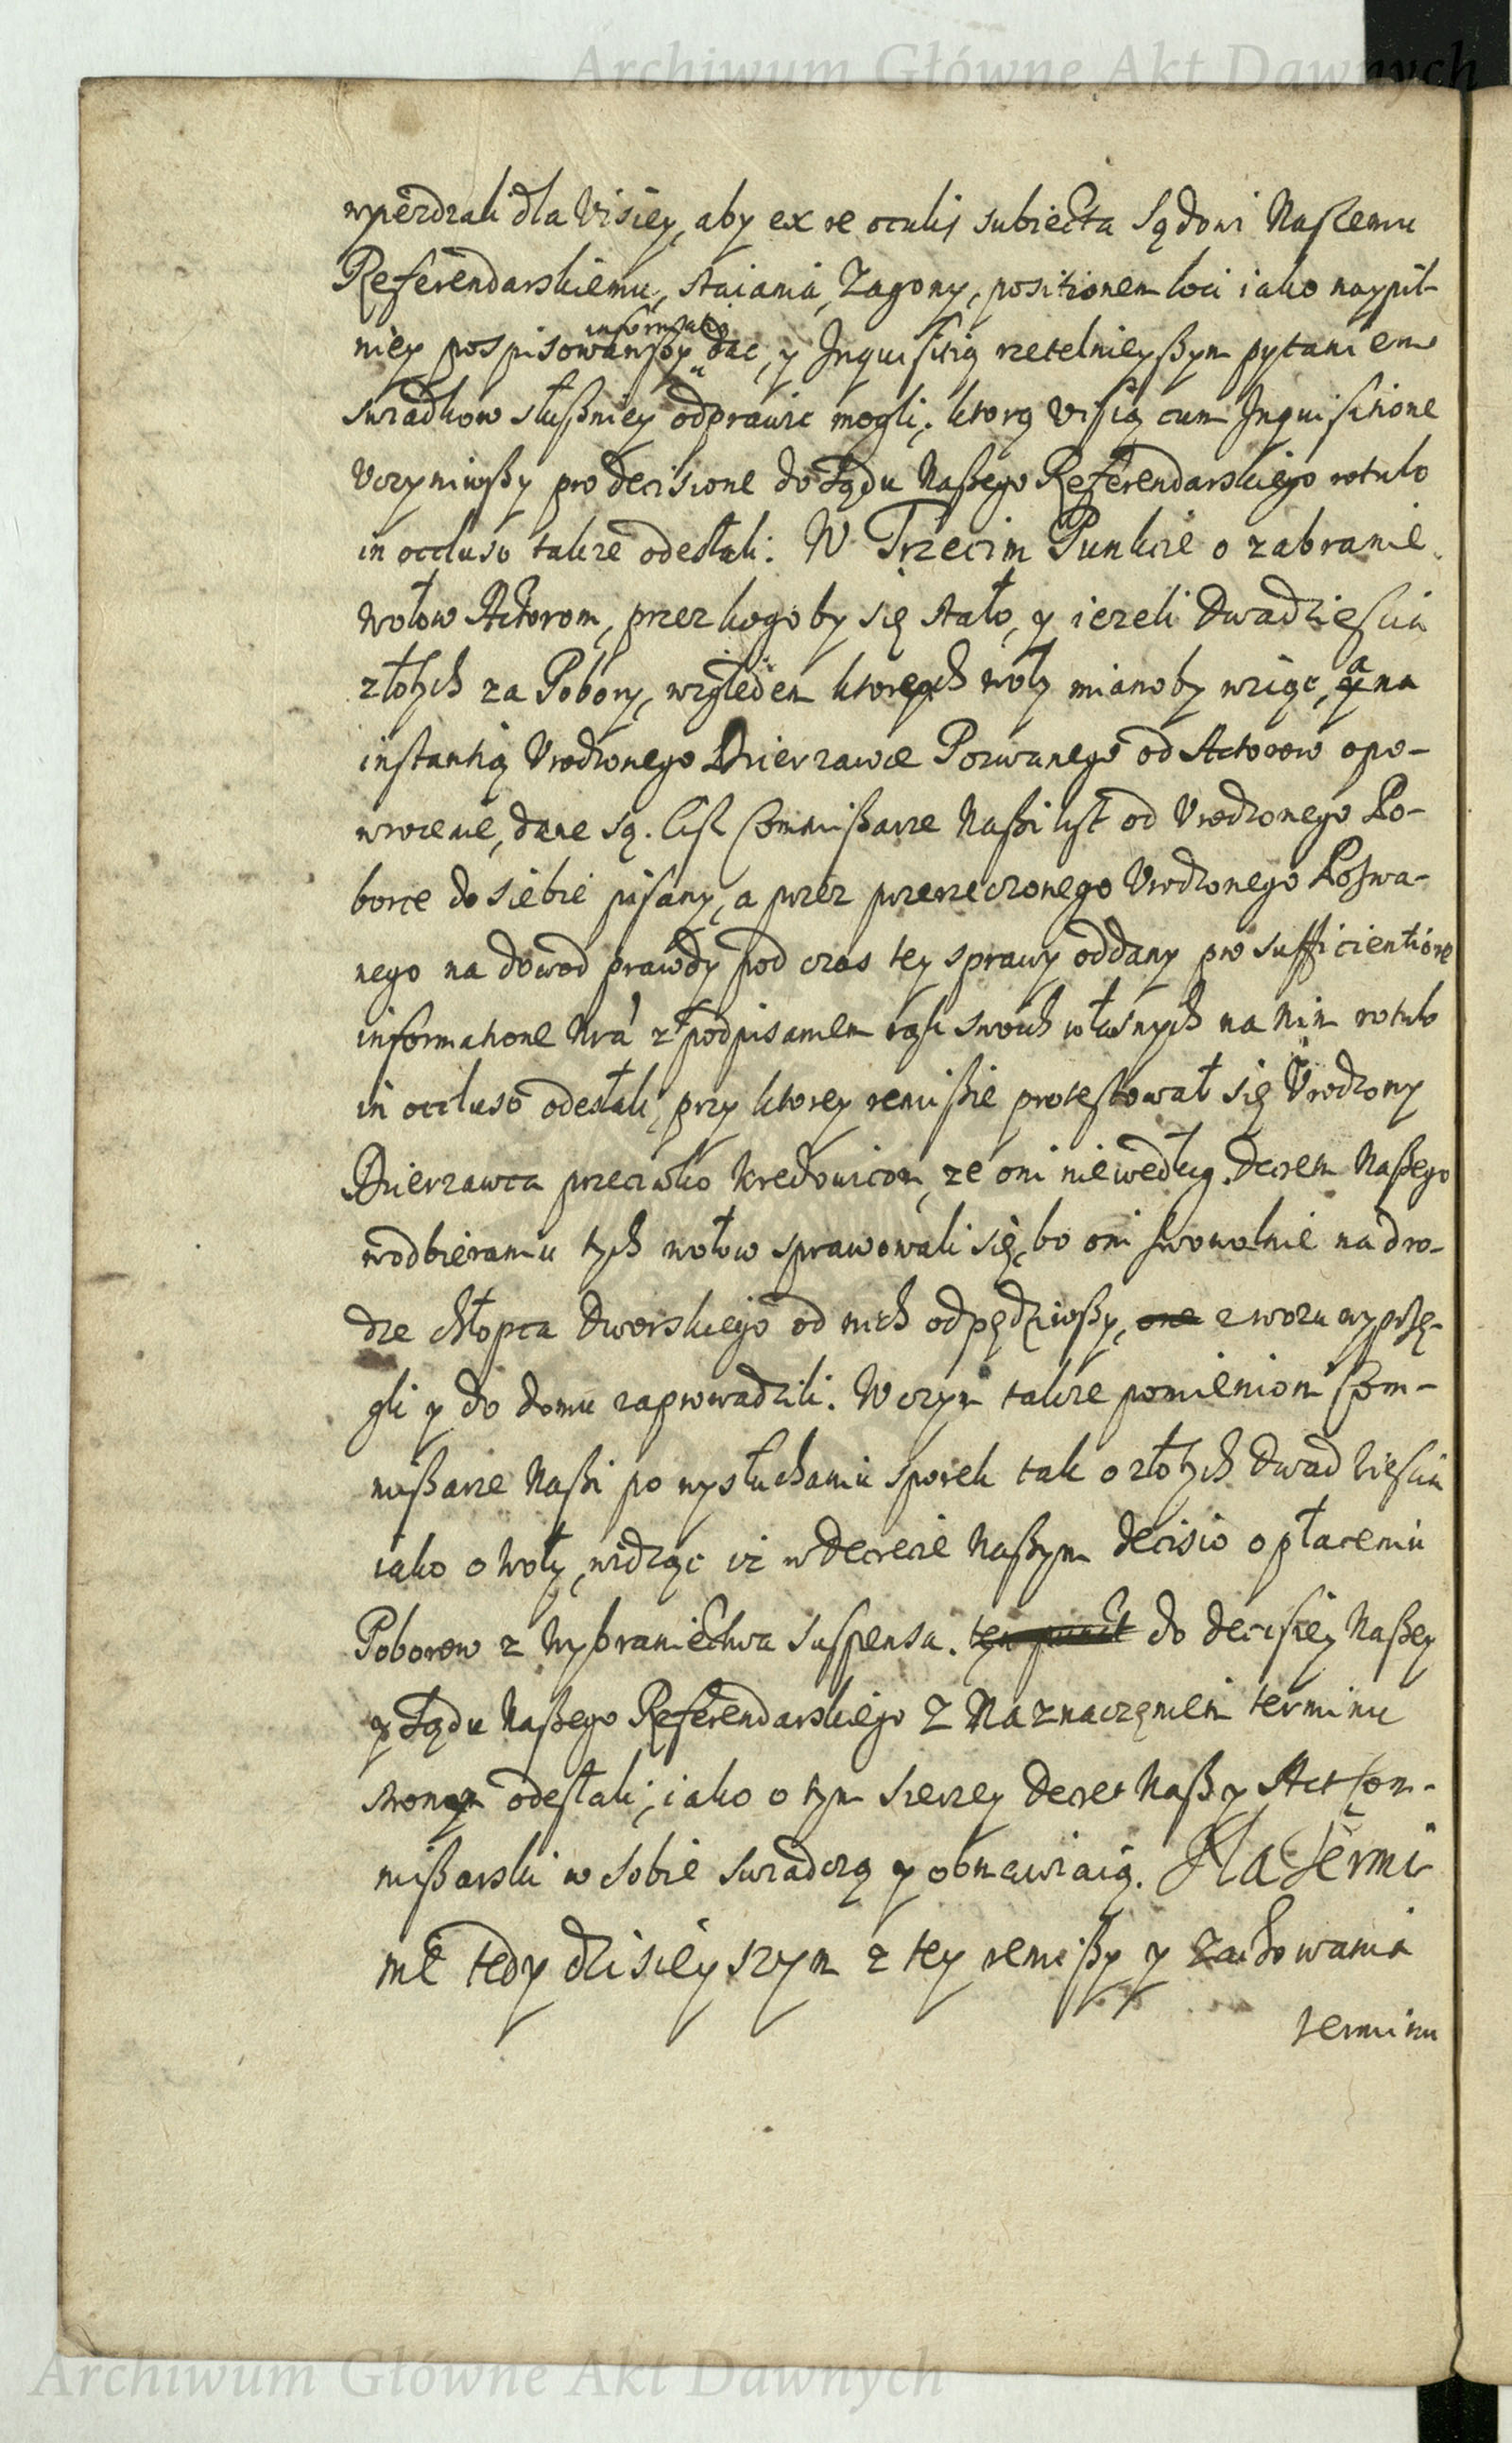 Archiwum Główne Akt Dawnych
wyiezdzali dla Visiey, aby ex re oculis subiecta Sądowi Naszemu
Referendarskiemu, staiania, Zagony, positionem loci iako naypil-
niey pospisowawszy informatią dac, y Inquisitią rzetelnieyszym pytaniem
swiadkow słuszniey odprawic mogli; ktorą Visią cum Inquisitione
Vczyniwszy pro decisione do Sądu Naszego Referendarskiego rotulo
in occluso takze odesłali. W Trzecim Punkcie o zabranie
wołow Actorom, przez kogo by się stało, y iezeli Dwadziescia
złotych za Pobory, względem ktorych woły mianoby wziąc, a na
instantią Vrodzonego Dzierzawce Pozwanego od Actorow opo-
wrocenie, dane są. Ciż Commissarze Naszi list od Vrodzonego Po-
borce do siebie pisany, a przez przerzeczonego Vrodzonego Pozwa-
nego na dowod prawdy pod czas tey sprawy oddany pro sufficientiore
informatione Nra z podpisaniem rąk swoich własnych na nim rotulo
in occluso odesłali, przy ktorey remissie protestował się Vrodzony
Dzierzawca przeciwko Kredowicom, ze oni niewedług Decretu Naszego
wodbieraniu tych wołow sprawowali się, bo oni swowolnie na dro-
dze chłopca Dworskiego od nich odpędziwszy, one z wozu wyprzę-
gli y do domu zaprowadzili. W czym takze pomienioni Com-
missarze Naszi po wysłuchaniu sporek tak o złotych Dwadziescia
iako o woły, widząc iż w Decrecie Naszym decisio o płaceniu
Poborow z Wybraniectwa suspensa. ten punct do decisiey Naszey
y Sądu Naszego Referendarskiego z Naznaczeniem terminu
stronom odesłali, iako o tym szerzey Decret Nasz y Act Com-
missarski w sobie swiadczą y obmawiaią. Na Termi-
nie tedy dzisieyszym z tey remissy y zachowania
terminu
Archiwum Główne Akt Dawnych